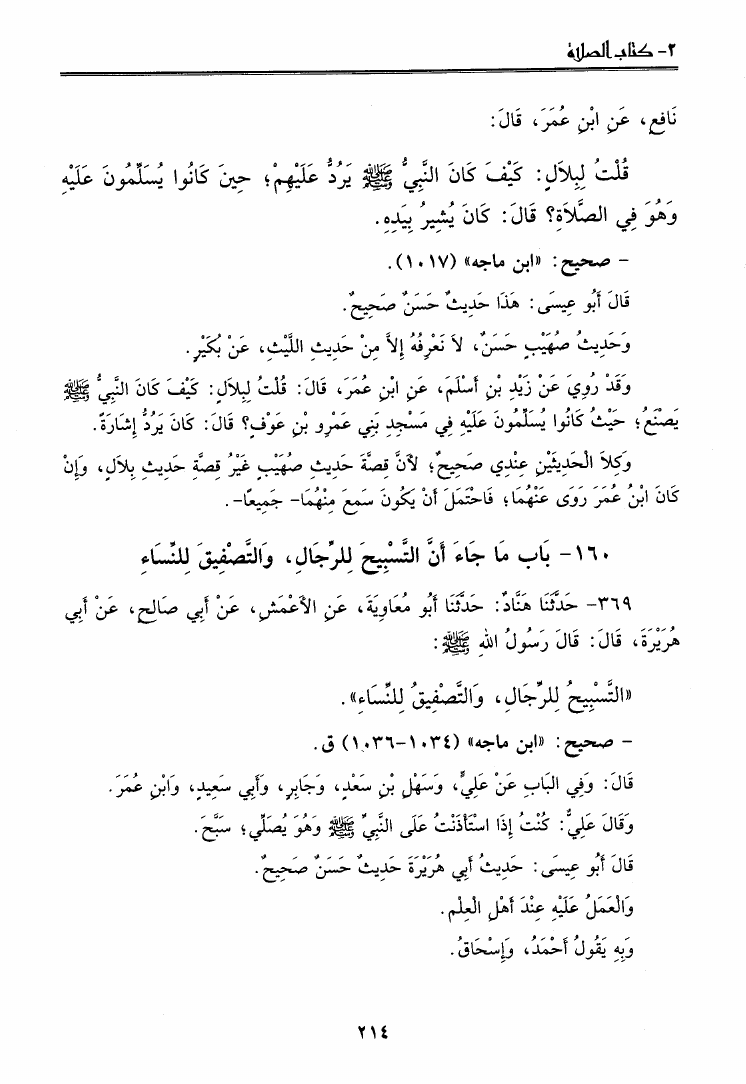 ٢- كتاب الصلاة
نَافِعٍ، عَنِ ابْنِ عُمَرَ، قَالَ:
قُلْتُ لِبِلاَلٍ: كَيْفَ كَانَ النَّبِيُّ ﷺ يَرُدُّ عَلَيْهِمْ؛ حِينَ كَانُوا يُسَلِّمُونَ عَلَيْهِ
وَهُوَ فِي الصَّلاَةِ؟ قَالَ: كَانَ يُشِيرُ بِيَدِهِ.
- صحيح: «ابن ماجه» (١٠١٧).
قَالَ أَبُو عِيسَى: هَذَا حَدِيثٌ حَسَنٌ صَحِيحٌ.
وَحَدِيثُ صُهَيْبٍ حَسَنٌ، لاَ نَعْرِفُهُ إِلاَّ مِنْ حَدِيثِ اللَّيْثِ، عَنْ بُكَيْرٍ.
وَقَدْ رُوِيَ عَنْ زَيْدِ بْنِ أَسْلَمَ، عَنِ ابْنِ عُمَرَ، قَالَ: قُلْتُ لِبِلاَلٍ: كَيْفَ كَانَ النَّبِيُّ ﷺ
يَصْنَعُ؛ حَيْثُ كَانُوا يُسَلِّمُونَ عَلَيْهِ فِي مَسْجِدِ بَنِي عَمْرِو بْنِ عَوْفٍ؟ قَالَ: كَانَ يَرُدُّ إِشَارَةً.
وَكِلاَ الْحَدِيثَيْنِ عِنْدِي صَحِيحٌ؛ لأَنَّ قِصَّةَ حَدِيثِ صُهَيْبٍ غَيْرُ قِصَّةِ حَدِيثِ بِلاَلٍ، وَإِنْ
كَانَ ابْنُ عُمَرَ رَوَى عَنْهُمَا؛ فَاحْتَمَلَ أَنْ يَكُونَ سَمِعَ مِنْهُمَا- جَمِيعًا-.
١٦٠- بَاب مَا جَاءَ أَنَّ التَّسْبِيحَ لِلرِّجَالِ، وَالتَّصْفِيقَ لِلنِّسَاءِ
٣٦٩- حَدَّثَنَا هَنَّادٌ: حَدَّثَنَا أَبُو مُعَاوِيَةَ، عَنِ الأَعْمَشِ، عَنْ أَبِي صَالِحٍ، عَنْ أَبِي
هُرَيْرَةَ، قَالَ: قَالَ رَسُولُ اللهِ ﷺ:
«التَّسْبِيحُ لِلرِّجَالِ، وَالتَّصْفِيقُ لِلنِّسَاءِ».
- صحيح: «ابن ماجه» (١٠٣٤-١٠٣٦) ق.
قَالَ: وَفِي الْبَاب عَنْ عَلِيٍّ، وَسَهْلِ بْنِ سَعْدٍ، وَجَابِرٍ، وَأَبِي سَعِيدٍ، وَابْنِ عُمَرَ.
وَقَالَ عَلِيٌّ: كُنْتُ إِذَا اسْتَأْذَنْتُ عَلَى النَّبِيِّ ﷺ وَهُوَ يُصَلِّي؛ سَبَّحَ.
قَالَ أَبُو عِيسَى: حَدِيثُ أَبِي هُرَيْرَةَ حَدِيثٌ حَسَنٌ صَحِيحٌ.
وَالْعَمَلُ عَلَيْهِ عِنْدَ أَهْلِ الْعِلْمِ.
وَبِهِ يَقُولُ أَحْمَدُ، وَإِسْحَاقُ.
٢١٤